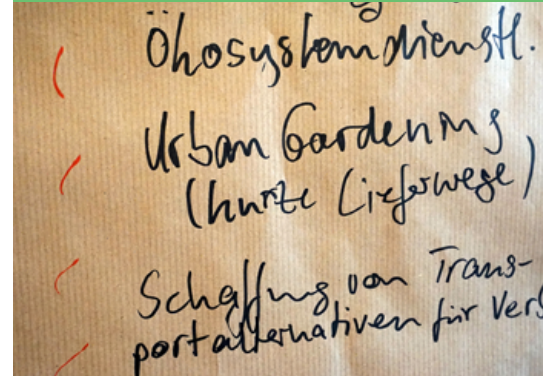 Ökosystemdienstl.
Urban Gardening
(kurze Lieferwege)
Schaffung von Trans-
portalternativen für Vers